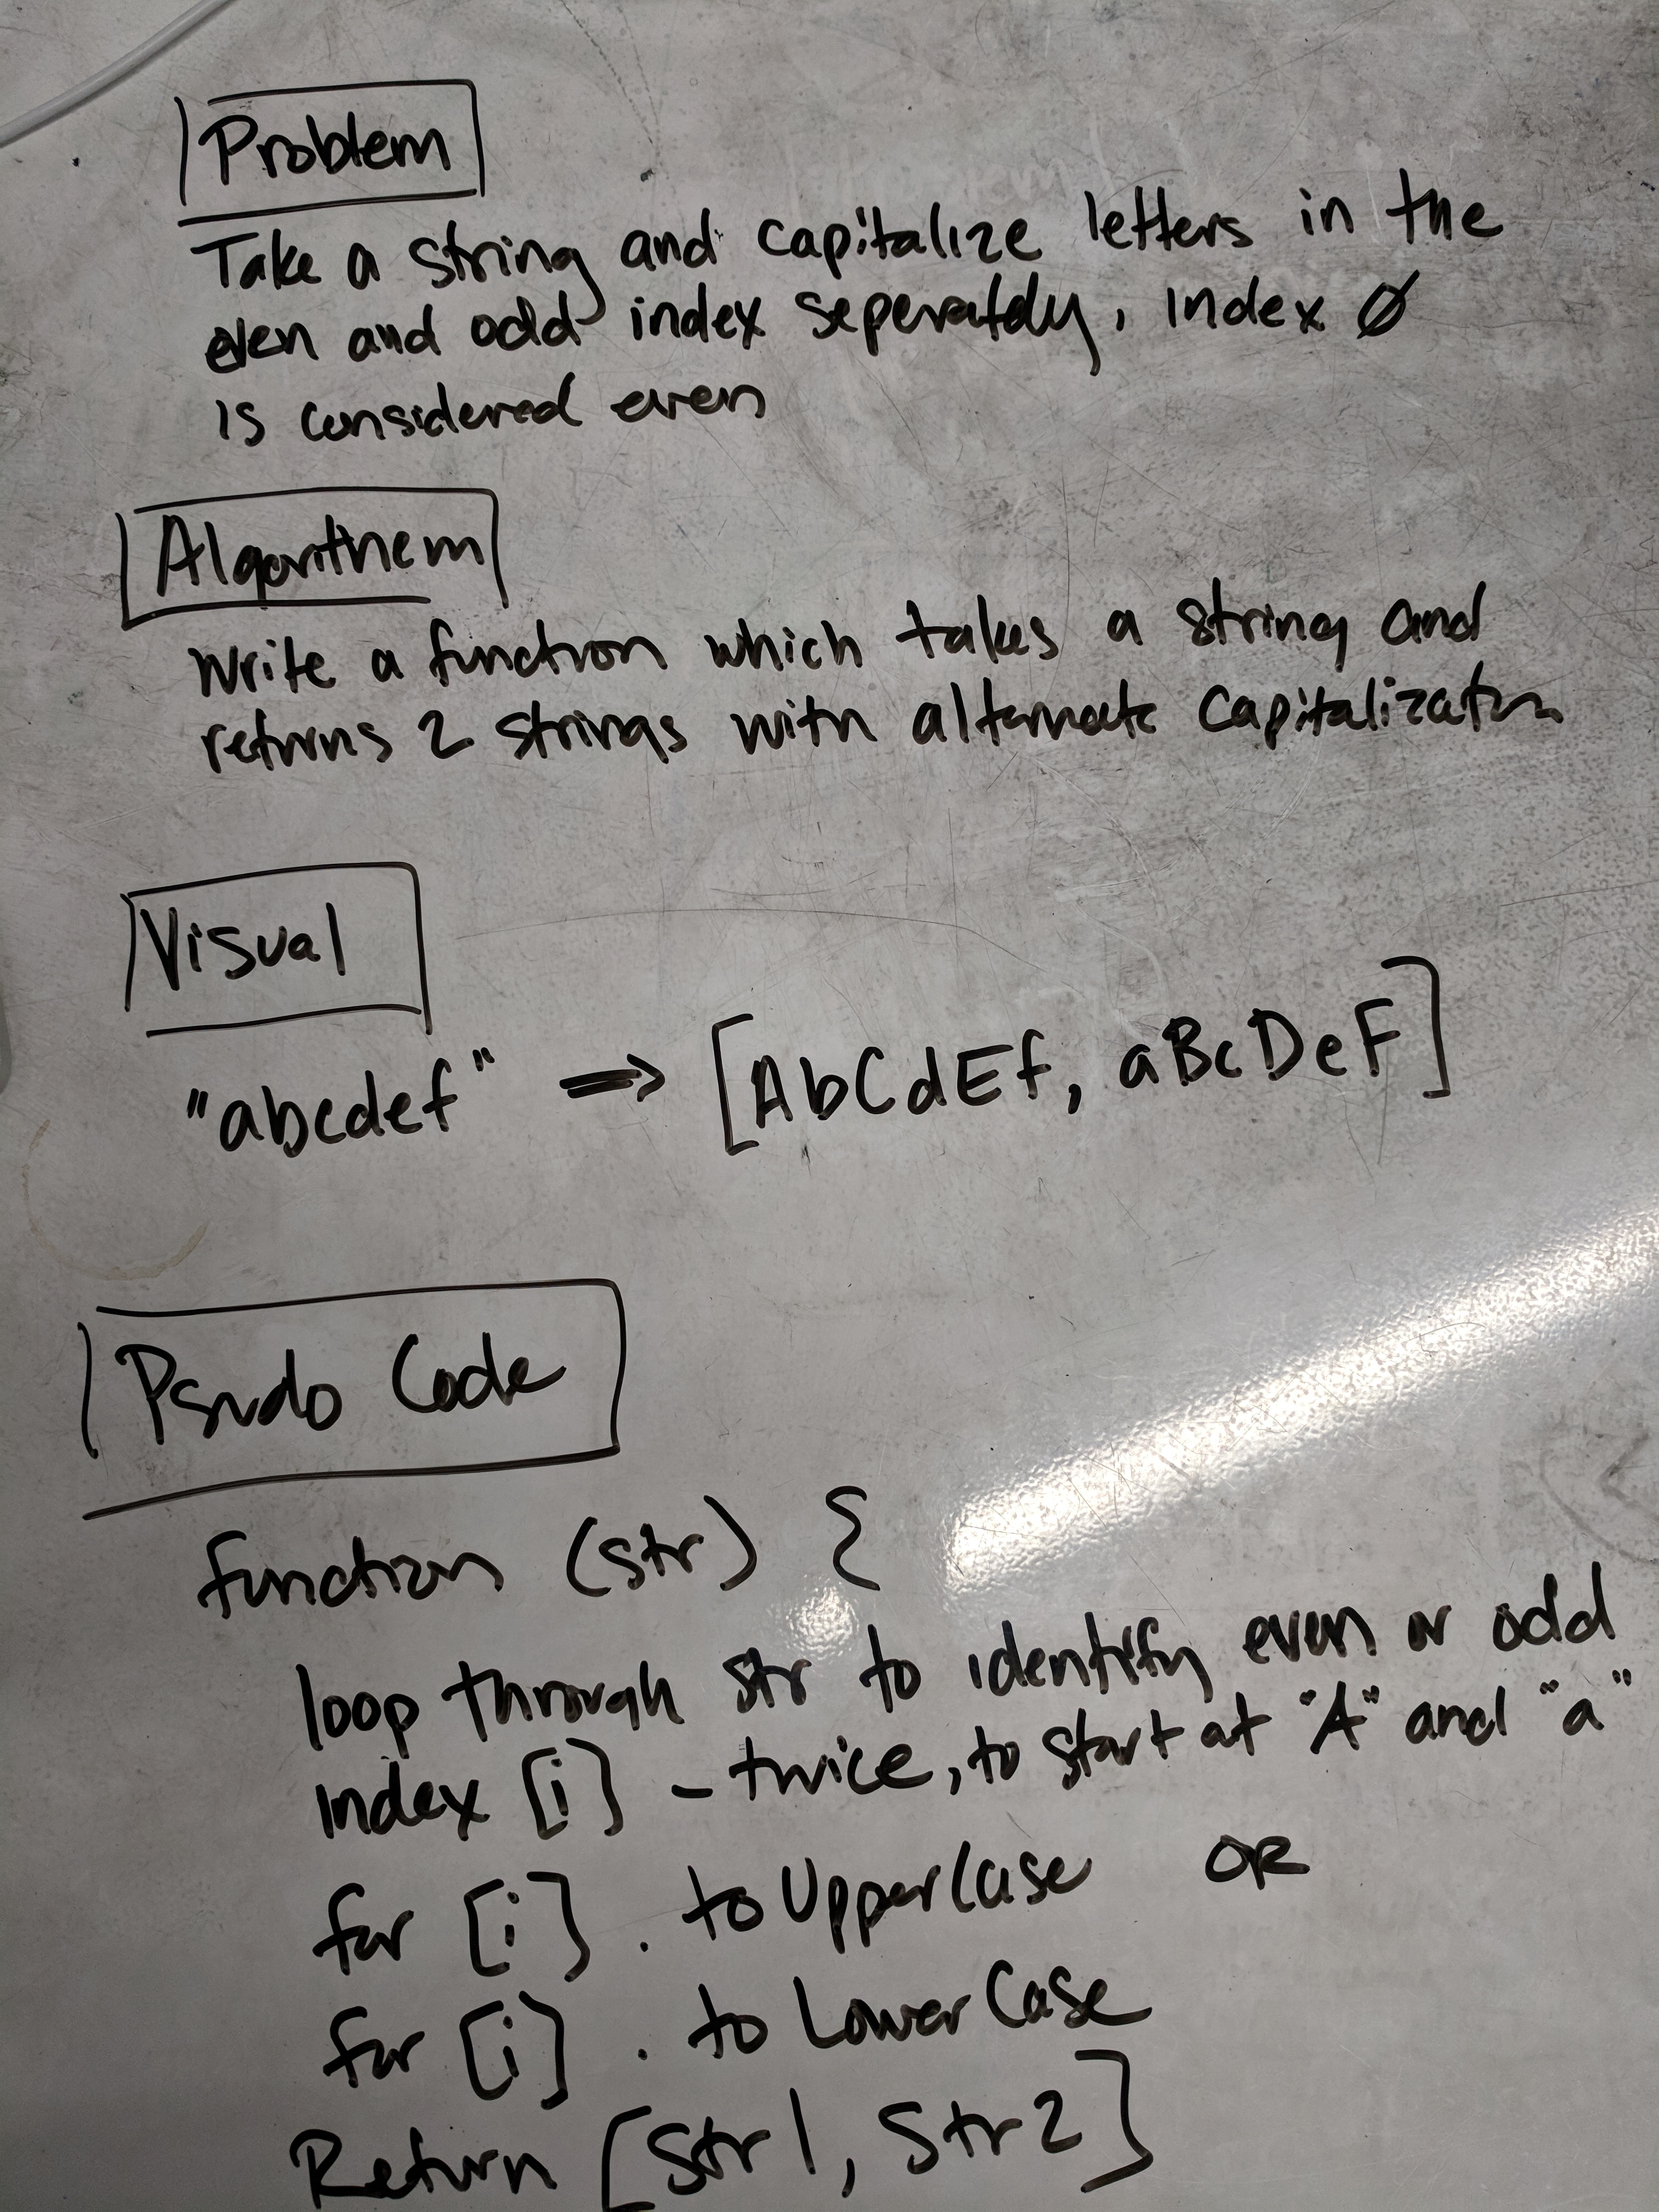 Problem
Take a string and capitalize letters in the
even and odd index seperately, index Ø
is considered even
Algorithem
write a function which takes a string and
returns 2 strings with alternate capitalization
Visual
"abcdef" ⇒ [AbCdEf, aBcDeF]
Psudo Code
function (str) {
loop through str to identify even or odd
index [i] - twice, to start at "A" and "a"
for [i] . to UpperCase OR
for [i] . to LowerCase
Return [Str1, Str2]